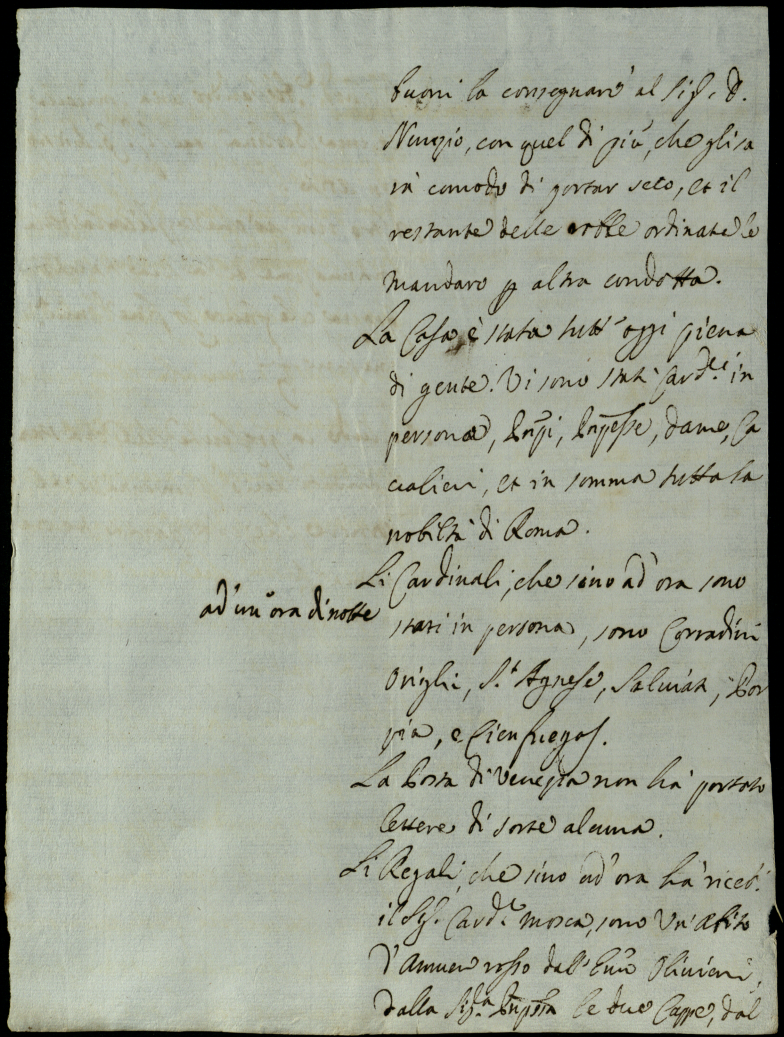 buoni la consegnarò al Sig.r D.
Nunzio, con quel di più, che gli sa
rà comodo di portar seco, et il
restante delle robbe ordinate le
mandarò p altra condotta.
La Casa è stata tutt'oggi piena
di gente. Vi sono stati Card.li in
persona, Pnpi, Pnpesse, dame, Ca
valieri, et in somma tutta la
nobiltà di Roma.
Li Cardinali, che sino ad' ora sono
ad' un' ora di notte
stati in persona, sono Corradini
Orighi, S.t Agnese, Salviati, Bor
gia, e Cienfuegos.
La Posta di Venezia non hà portato
lettere di sorte alcuna.
Li Regali, che sino ad' ora hà ricev.
il Sig.r Card.l Mosca, sono Un' Abito
d'Amuer rosso dall' Emo Olivieri,
dalla Sig.ra Pnpssa le due Cappe, dal